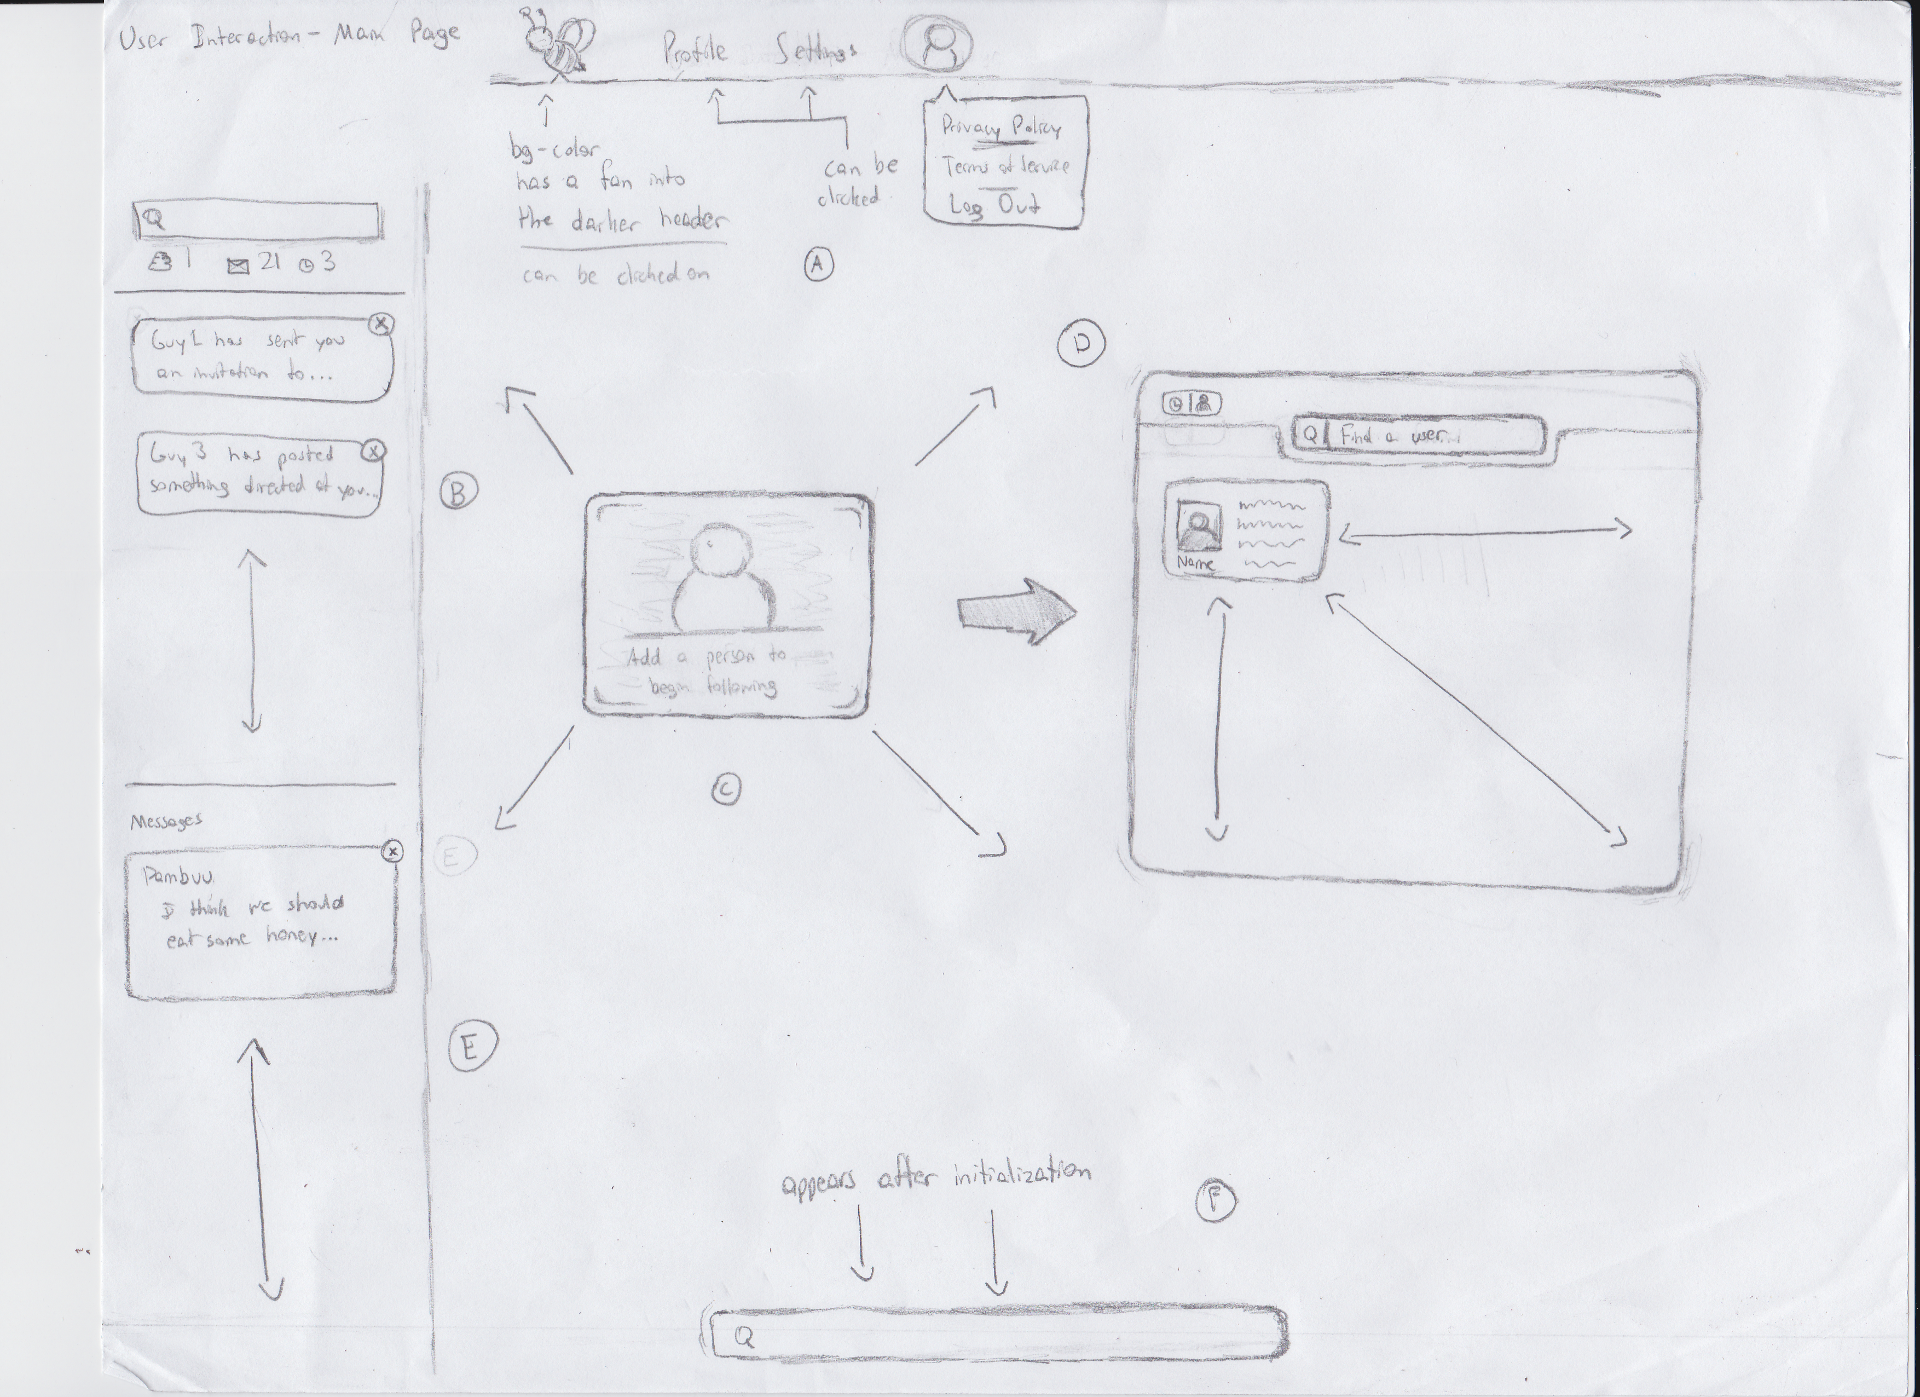 User Interaction - Main Page
Profile
Settings
Privacy Policy
Terms of Service
Log Out
bg-color
has a fan into
the darker header
can be clicked on
can be
clicked
A
1
21
3
Guy 1 has sent you
an invitation to...
Guy 3 has posted
something directed at you...
B
Messages
Pambuu
I think we should
eat some honey...
E
E
Add a person to
begin following
C
D
Find a user
Name
appears after initialization
F